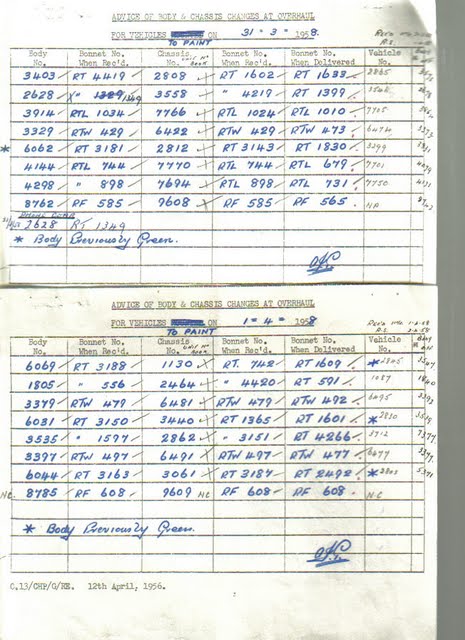 ADVICE OF BODY & CHASSIS CHANGES AT OVERHAUL
FOR VEHICLES ON 31 - 3 - 1958.
TO PAINT
Body No. Bonnet No. When Rec'd. Chassis No. Bonnet No. When Recd. Bonnet No. When Delivered Vehicle No.
3403 RT 4419 2808 RT 1602 RT 1633
2628 " 1349 3558 " 4219 RT 1399
3914 RTL 1034 7766 RTL 1024 RTL 1010 7705
3329 RTW 429 6422 RTW 429 RTW 473 6474
* 6062 RT 3181 2812 RT 3143 RT 1830 3299
4144 RTL 744 7770 RTL 744 RTL 679 7701
4298 " 898 7694 RTL 898 RTL 731 7750
8762 RF 585 9608 RF 585 RF 565
2628 RT 1349
* Body Previously Green.
ADVICE OF BODY & CHASSIS CHANGES AT OVERHAUL
FOR VEHICLES ON 1 - 4 - 1958
TO PAINT
Body No. Bonnet No. When Rec'd. Chassis No. Bonnet No. When Recd. Bonnet No. When Delivered Vehicle No.
6069 RT 3188 1130 RT. 742 RT 1609 *
1805 " 556 2464 " 4420 RT 591 1087
3379 RTW 479 6481 RTW 479 RTW 492 6495
6031 RT 3150 3440 RT 1365 RT 1601 * 2830
3535 " 1597 2862 " 3151 RT 4266
3397 RTW 497 6491 RTW 497 RTW 477 6477
6044 RT 3163 3061 RT 3187 RT 2492 *
N.C. 8785 RF 608 9609 N.C RF 608 RF 608 N.C
* Body Previously Green.
C.13/CHP/G/KE. 12th April, 1956.